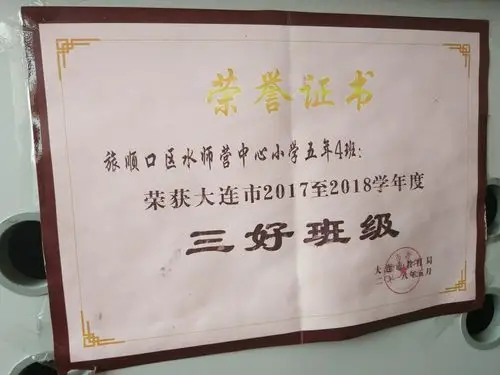 荣誉证书
旅顺口区水师营中心小学五年4班：
荣获大连市2017至2018学年度
三好班级
大连市教育局
二〇一八年五月